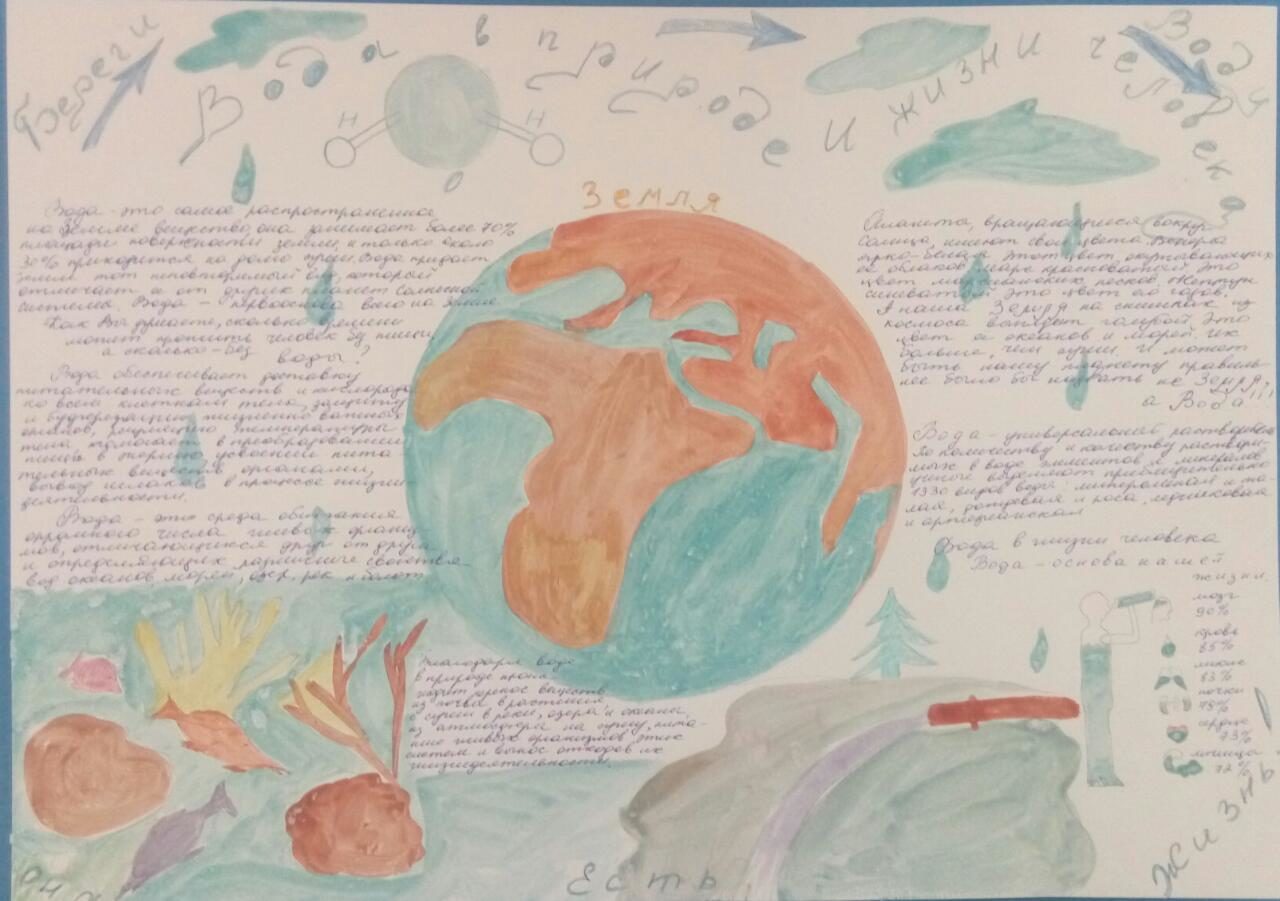 Береги
Воду
Вода в природе и жизни человека
Н Н
О
Земля
Вода - это самое распространенное
на Земле вещество, она занимает более 70%
площади поверхности земли, и только около
30% приходится на долю суши. Вода придает
Земле тот неповторимый вид, который
отличает ее от других планет Солнечной
системы. Вода - первооснова всего на Земле.
Как Вы думаете, сколько времени
может прожить человек без пищи,
а сколько - без воды?
Вода обеспечивает доставку
питательных веществ и кислорода
ко всем клеткам тела, защиту
и буферизацию жизненно важных
органов, температуры
тела помогает в преобразовании
пищи в энергию усвоении пита-
тельных веществ органами,
вывод шлаков в процессе жизни
деятельности.
Вода - это среда обитания
огромного числа живых организ-
мов, отличающихся друг от друга
и определяющих различные свойства
вод океанов морей, озер, рек и болот
Благодаря воде
в природе проис-
ходит перенос веществ
из почвы в растения,
с суши в реки, озера и океаны,
из атмосферы на сушу, пита-
ние живых организмов этих
систем и вынос отходов их
жизнедеятельности.
Планета, вращающиеся вокруг
Солнца, имеют свои цвета. Венера
ярко-белая этот цвет окутывающих
ее облаков Марс красноватый это
цвет марсианских песков. Нептун
синеватый это цвет его газов.
А наша Земля на снимках из
космоса выглядит голубой. Это
цвет ее океанов и морей. Их
больше, чем суши. И может
быть нашу планету правиль-
нее было бы назвать не Земля,
а Вода!!!
Вода - универсальный растворитель
По количеству и качеству раствори-
мых в воде элементов и минералов
ученые выделяют приблизительно
1330 видов воды: минеральная и та-
лая, дождевая и роса, ледниковая
и артезианская
Вода в жизни человека
Вода - основа нашей
жизни.
мозг
90%
кровь
85%
легкие
83%
почки
79%
сердце
73%
мышцы
72%
Есть
Жизнь